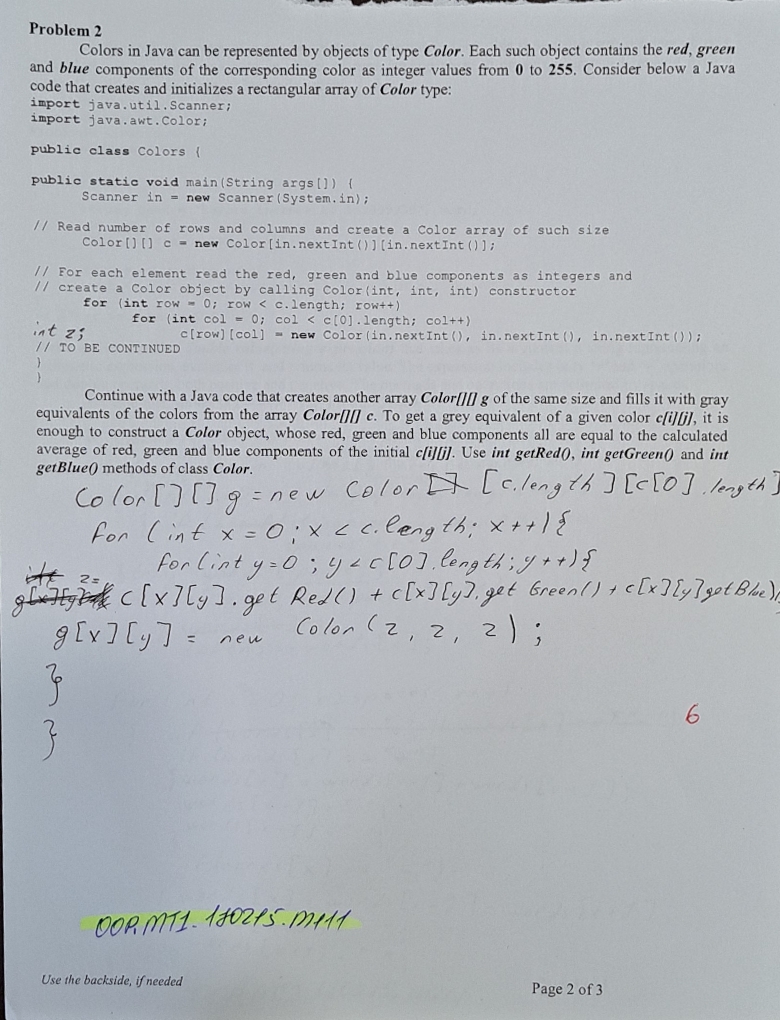 Problem 2
Colors in Java can be represented by objects of type Color. Each such object contains the red, green
and blue components of the corresponding color as integer values from 0 to 255. Consider below a Java
code that creates and initializes a rectangular array of Color type:
import java.util.Scanner;
import java.awt.Color;
public class Colors {
public static void main(String args[]) {
Scanner in = new Scanner(System.in);
// Read number of rows and columns and create a Color array of such size
Color[][] c = new Color[in.nextInt()][in.nextInt()];
// For each element read the red, green and blue components as integers and
// create a Color object by calling Color(int, int, int) constructor
for (int row = 0; row < c.length; row++)
for (int col = 0; col < c[0].length; col++)
int z; c[row][col] = new Color(in.nextInt(), in.nextInt(), in.nextInt());
// TO BE CONTINUED
}
}
Continue with a Java code that creates another array Color[][] g of the same size and fills it with gray
equivalents of the colors from the array Color[][] c. To get a grey equivalent of a given color c[i][j], it is
enough to construct a Color object, whose red, green and blue components all are equal to the calculated
average of red, green and blue components of the initial c[i][j]. Use int getRed(), int getGreen() and int
getBlue() methods of class Color.
Color[][] g = new Color [c.length][c[0].length]
for (int x = 0; x < c.length; x++){
for (int y = 0; y < c[0].length; y++){
z = c[x][y].get Red() + c[x][y].get Green() + c[x][y]getBlue)
g[x][y] = new Color(z, z, z);
}
}
6
OOP.MT1.170215.M111
Use the backside, if needed
Page 2 of 3